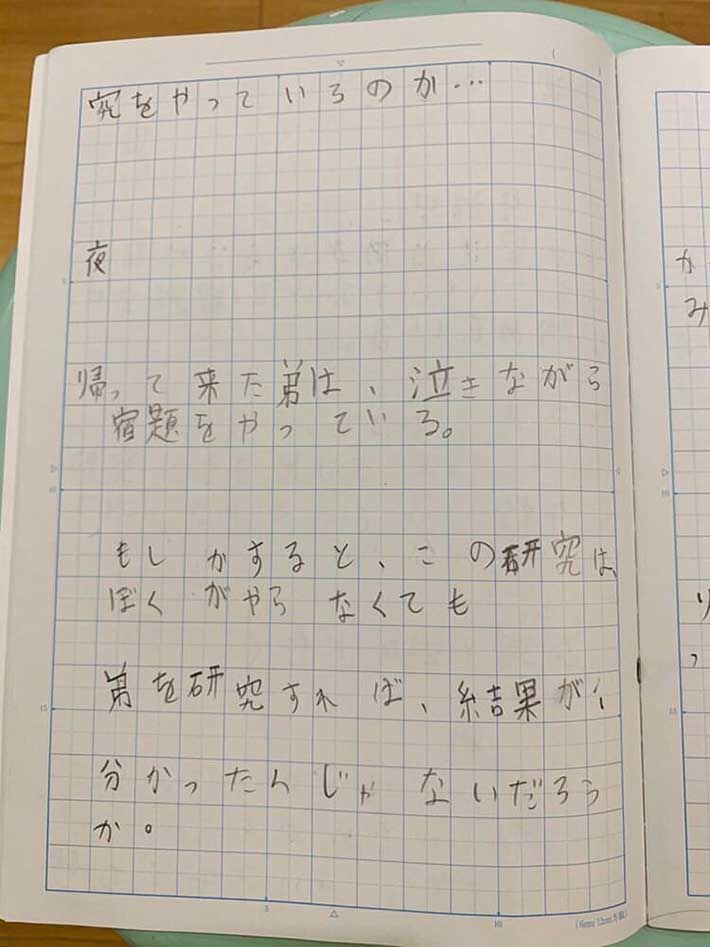 究をやっているのか…
夜
帰って来た弟は、泣きながら
宿題をやっている。
もしかすると、この研究は、
ぼくがやらなくても
弟を研究すれば、結果が
分かったんじゃないだろう
か。
か
み
り
、
5
10
15
5
10